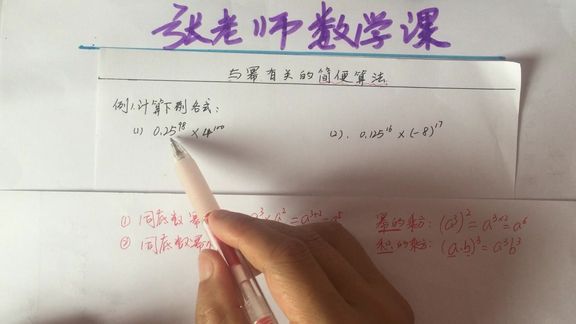 张老师数学课
与幂有关的简便算法
例1.计算下列各式:
(1) 0.25⁹⁸×4¹⁰⁰ (2). 0.125¹⁶×(-8)¹⁷
① 同底数幂 a³×a²=a³⁺²=a⁵ 幂的乘方: (a³)²=a³ˣ²=a⁶
② 同底数幂 积的乘方: (a·b)³=a³b³